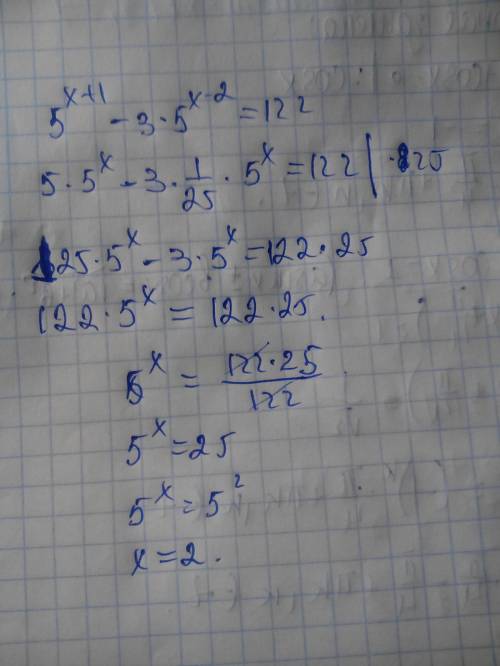 5^{x+1} - 3 · 5^{x-2} = 122
5 · 5^x - 3 · 1/25 · 5^x = 122 | · 25
125 · 5^x - 3 · 5^x = 122 · 25
122 · 5^x = 122 · 25.
5^x = 122 · 25 / 122
5^x = 25
5^x = 5^2
x = 2.